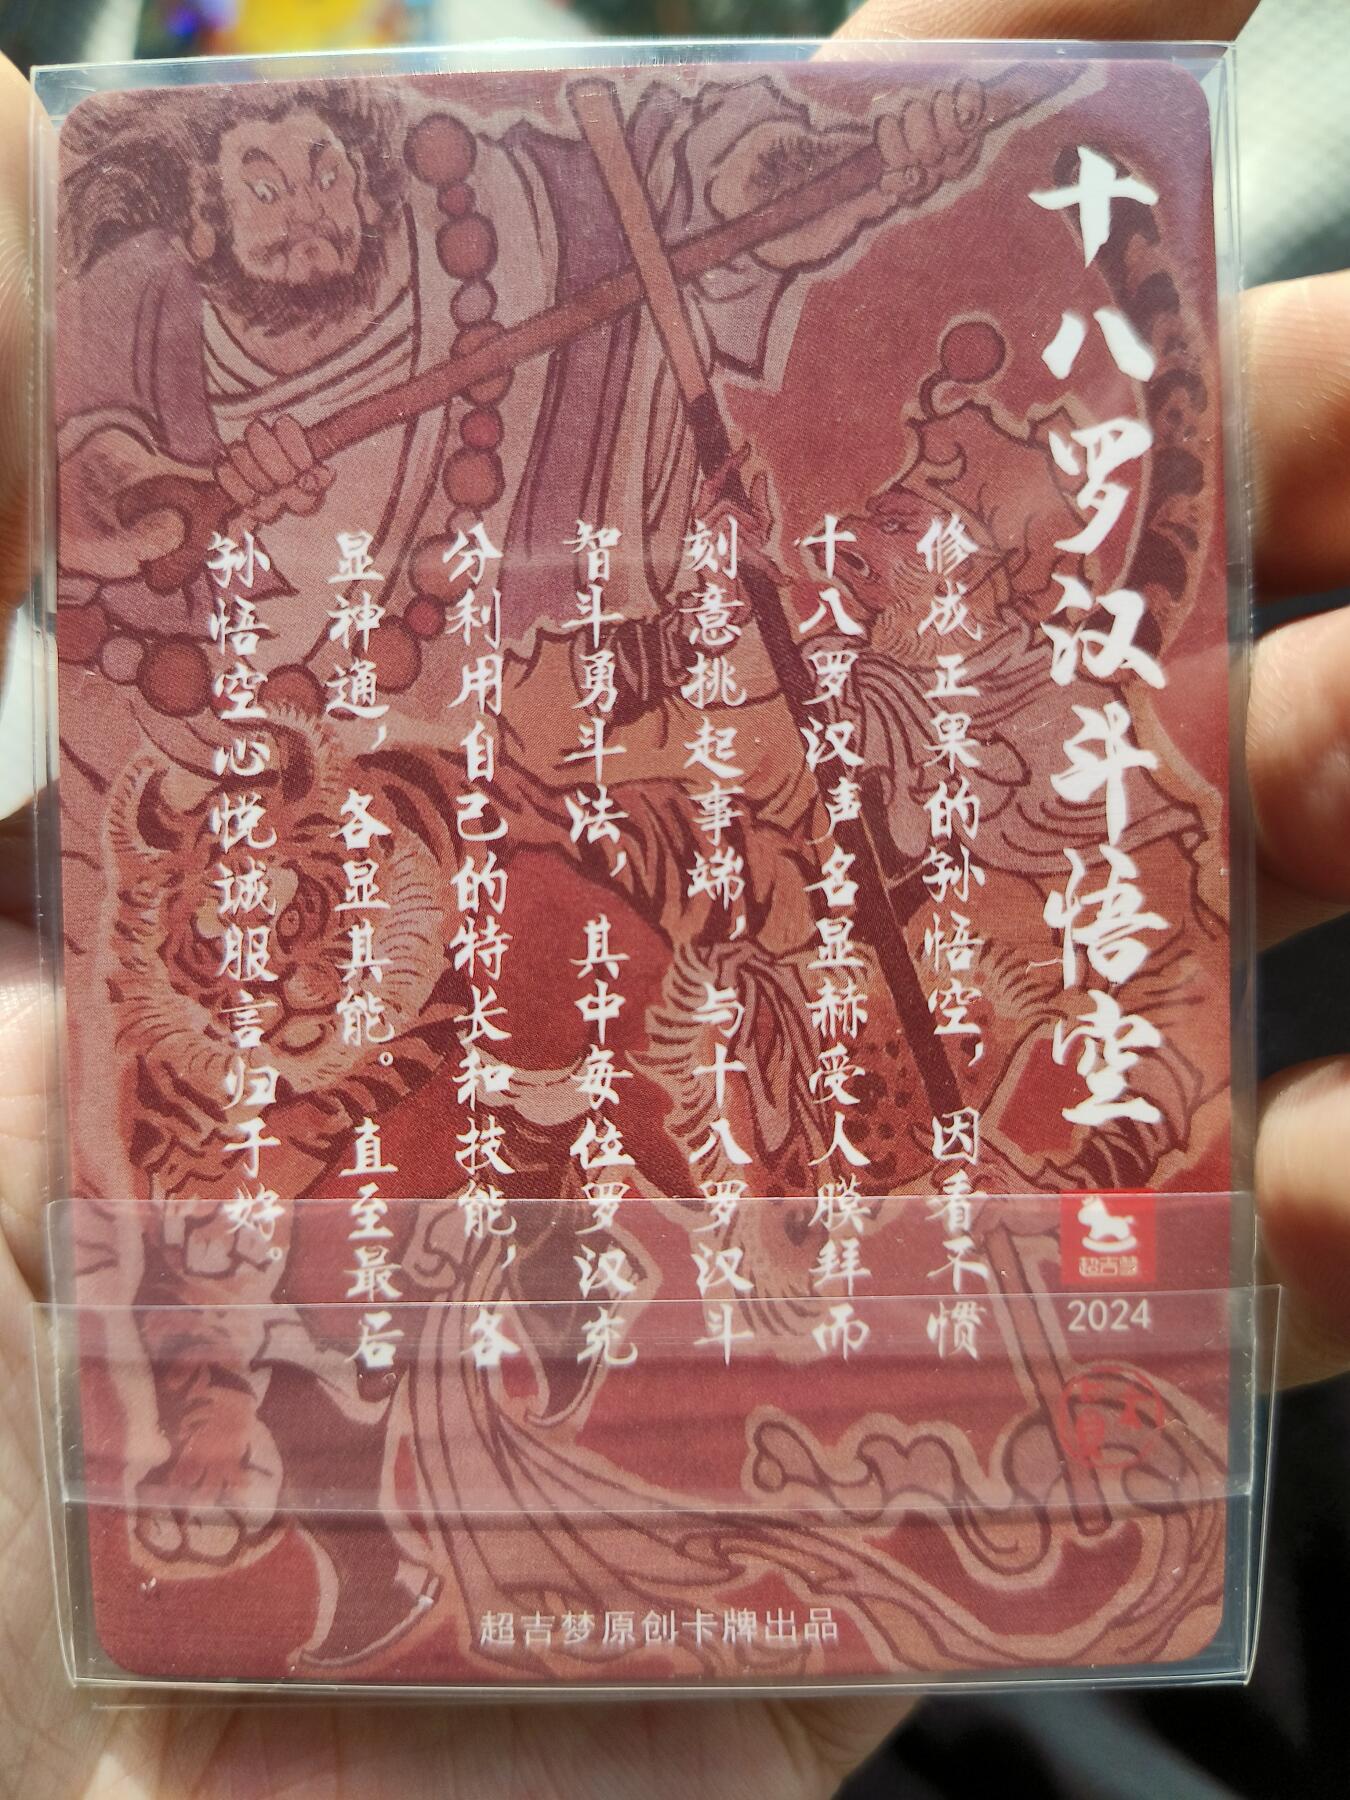 十八罗汉斗悟空
超吉梦
2024
修成正果的孙悟空，因看不惯
十八罗汉声名显赫受人膜拜而
刻意挑起事端，与十八罗汉斗
智斗勇斗法，其中每位罗汉充
分利用自己的特长和技能，各
显神通，各显其能。直至最后
孙悟空心悦诚服言归于好。
超吉梦原创卡牌出品